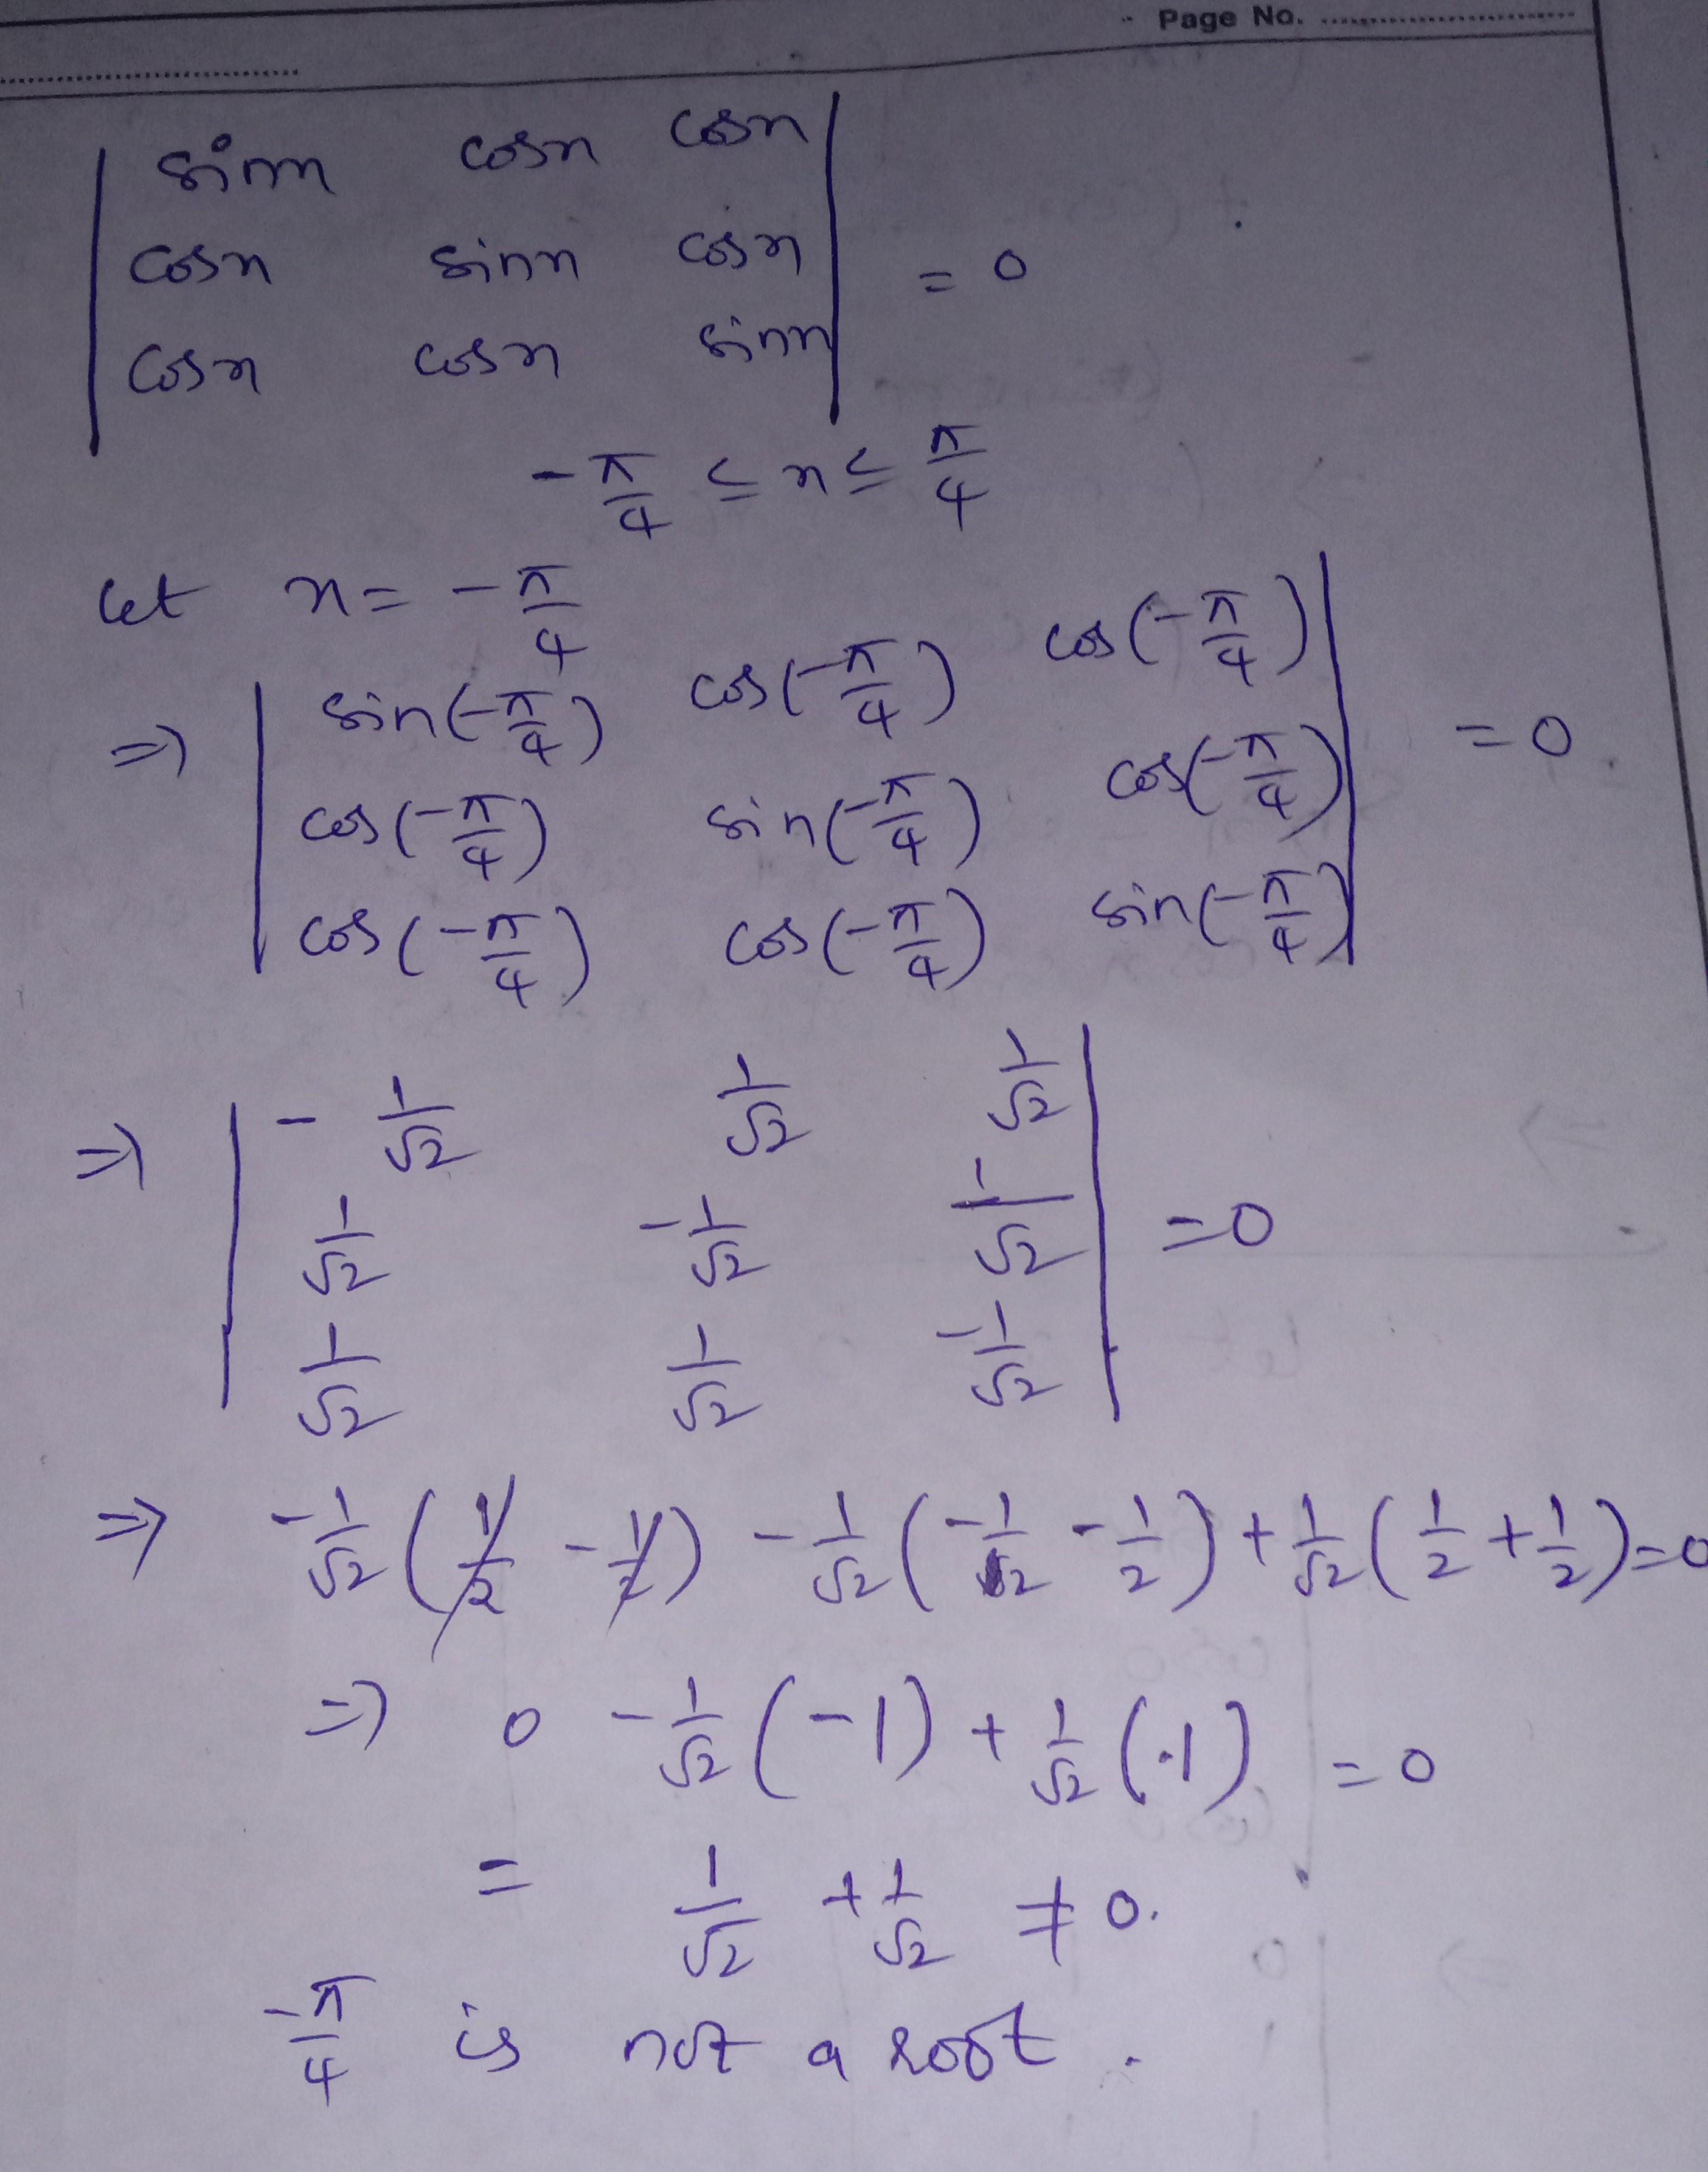 Page No.
| sinx cosx cosx |
| cosx sinx cosx | = 0
| cosx cosx sinx |
-π/4 ≤ x ≤ π/4
let x = -π/4
⇒ | sin(-π/4) cos(-π/4) cos(-π/4) | = 0
| cos(-π/4) sin(-π/4) cos(-π/4) |
| cos(-π/4) cos(-π/4) sin(-π/4) |
⇒ | -1/√2 1/√2 1/√2 |
| 1/√2 -1/√2 1/√2 | = 0
| 1/√2 1/√2 -1/√2 |
⇒ -1/√2 (1/2 - 1/2) - 1/√2 (-1/2 - 1/2) + 1/√2 (1/2 + 1/2) = 0
⇒ 0 - 1/√2 (-1) + 1/√2 (1) = 0
= 1/√2 + 1/√2 ≠ 0.
-π/4 is not a root.